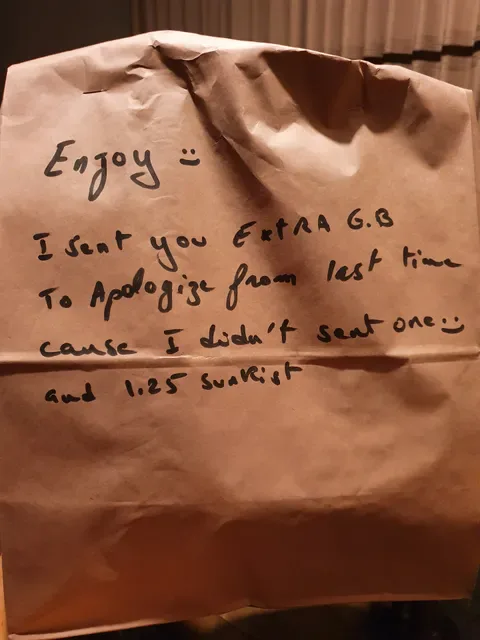 Enjoy :)
I sent you ExtRA G.B
To Apologize from last time
cause I didn't sent one :)
and 1.25 sunkist